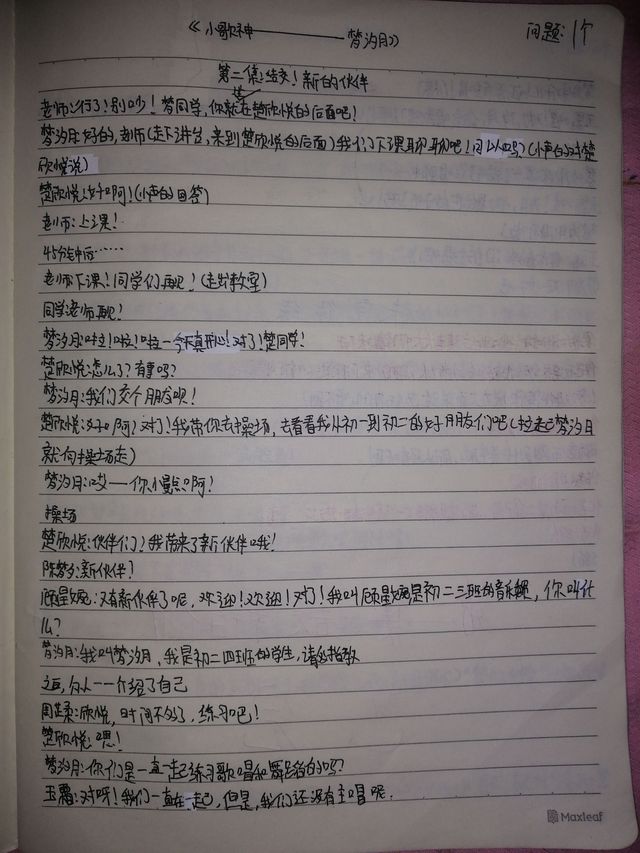 《小歌神——梦汐月》
问题:1个
第二集:结交!新的伙伴
老师:行了!别吵!梦同学,你就坐在楚欣悦的后面吧!
梦汐月:好的,老师(走下讲台,来到楚欣悦的后面)我们下课聊聊吧!可以吗?(小声的对楚
欣悦说)
楚欣悦:好啊!(小声的回答)
老师:上课!
45分钟后……
老师:下课!同学们再见!(走出教室)
同学:老师再见!
梦汐月:啦!啦!啦—今天真开心!对了!楚同学!
楚欣悦:怎儿了?有事吗?
梦汐月:我们交个朋友呗!
楚欣悦:好啊!对了!我带你去操场,去看看我从初一到初二的好朋友们吧(拉起梦汐月
就向操场走)
梦汐月:哎——你慢点啊!
操场
楚欣悦:伙伴们!我带来了新伙伴哦!
陈梦:新伙伴?
顾星婉:又有新伙伴了呢,欢迎!欢迎!对了!我叫顾星婉是初二三班的音乐,你叫什
么?
梦汐月:我叫梦汐月,我是初二四班的学生,请多指教
之后,众人一一介绍了自己
周芷柔:欣悦,时间不多了,练习吧!
楚欣悦:嗯!
梦汐月:你们是一直一起练习歌唱和舞蹈的吗?
玉霜:对呀!我们一直在一起,但是,我们还没有主唱呢.
Maxleaf